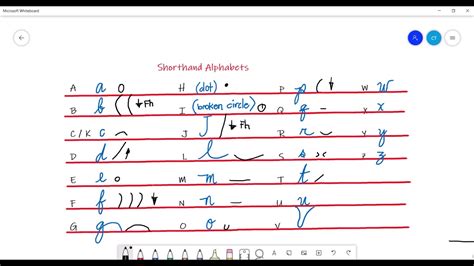 Microsoft Whiteboard
CT
Shorthand Alphabets
A a H (dot) P p W w
B b Fh I (broken circle) Q q X x
C/K c J J Fh R r Y y
D d L l S s Z z
E e M m T t
F f N n U u
G g O o V V